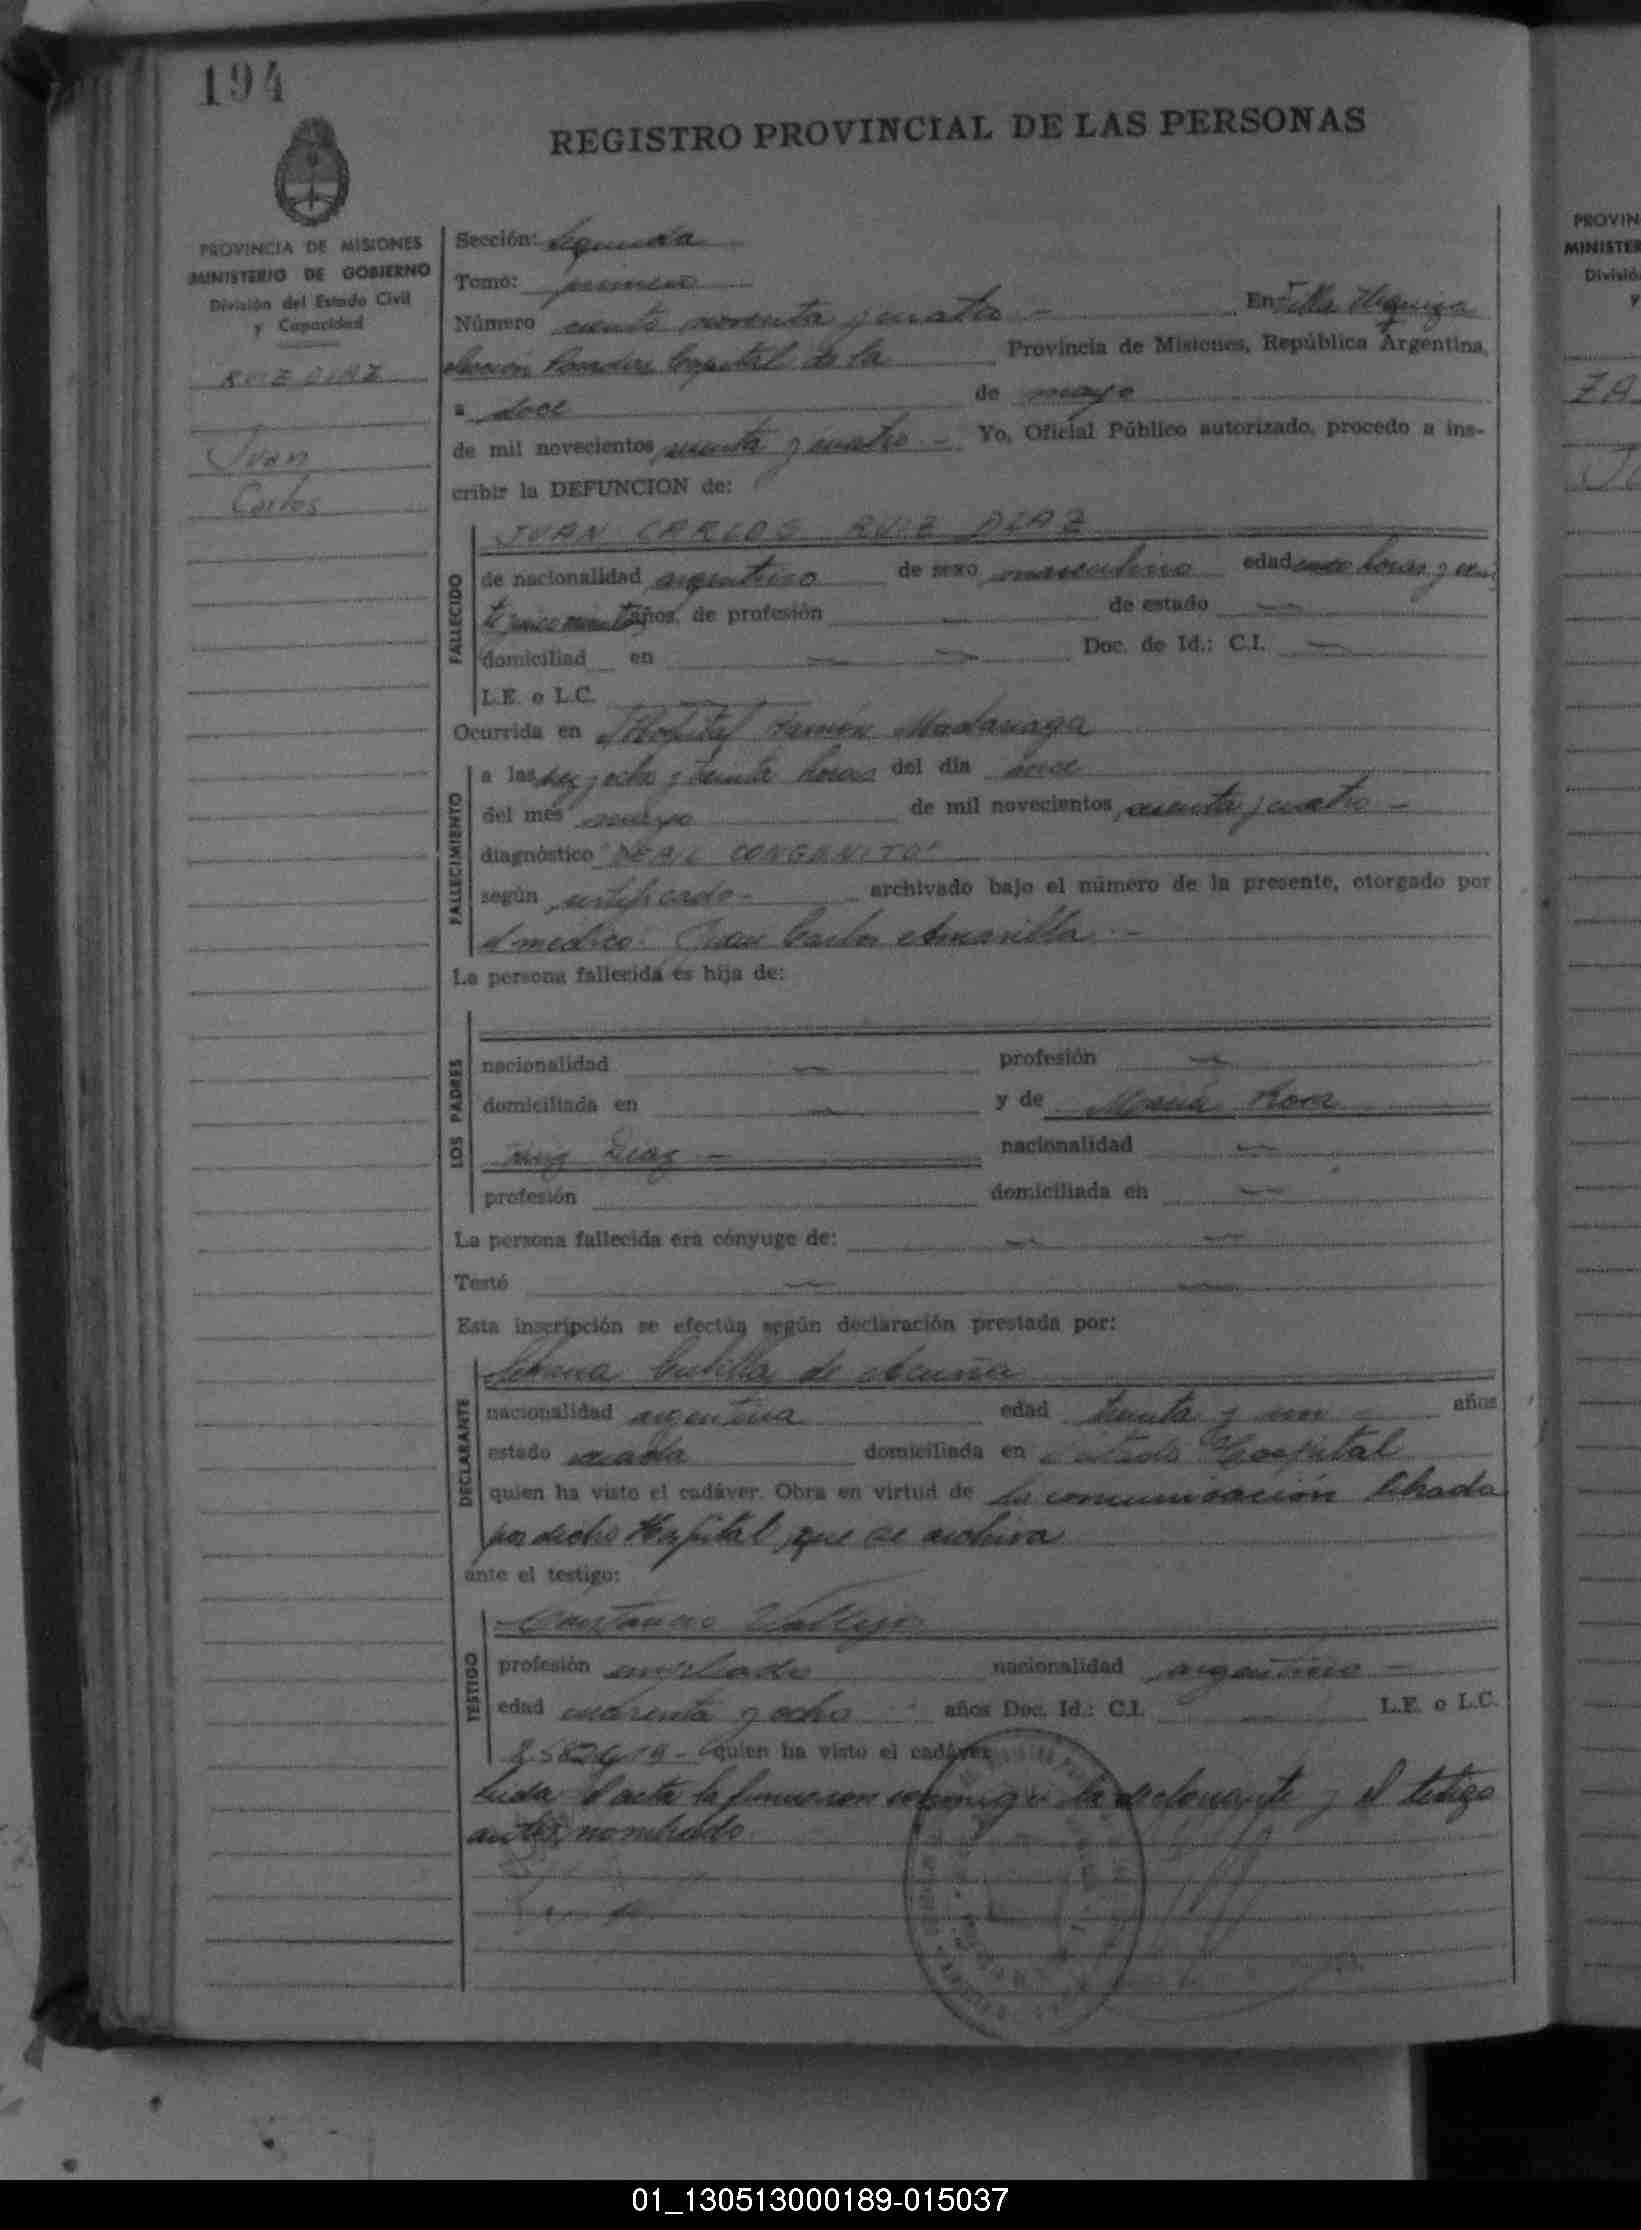 194
REGISTRO PROVINCIAL DE LAS PERSONAS
PROVINCIA DE MISIONES
MINISTERIO DE GOBIERNO
División del Estado Civil
y Capacidad
RUIZ DIAZ
Juan
Carlos
Sección: Segunda
Tomo: primero
Número ciento noventa y cuatro - En Villa Urquiza
Posadas Capital de la Provincia de Misiones, República Argentina,
a doce de mayo
de mil novecientos y cuatro - Yo, Oficial Público autorizado, procedo a ins-
cribir la DEFUNCION de:
FALLECIDO
JUAN CARLOS RUIZ DIAZ
de nacionalidad argentino de sexo masculino edad horas y
años, de profesión de estado
domiciliad en Doc. de Id.: C.I.
L.E. o L.C.
Ocurrida en Hospital Ramón Madariaga
FALLECIMIENTO
a las diez y ocho y treinta horas del día once
del mes mayo de mil novecientos y cuatro -
diagnóstico "DEBIL CONGENITO"
según certificado - archivado bajo el número de la presente, otorgado por
el medico: Juan Carlos Amarilla. -
La persona fallecida es hija de:
LOS PADRES
nacionalidad profesión
domiciliada en y de María Rosa
Ruiz Diaz - nacionalidad
profesión domiciliada en
La persona fallecida era cónyuge de:
Testó
Esta inscripción se efectúa según declaración prestada por:
DECLARANTE
de Acuña
nacionalidad argentina edad treinta y un - años
estado casada domiciliada en citado Hospital
quien ha visto el cadáver. Obra en virtud de la comunicación librada
por dicho Hospital que se archiva
ante el testigo:
TESTIGO
Constancio Vallejo
profesión empleado nacionalidad argentino -
edad cuarenta y ocho años Doc. Id.: C.I. L.E. o L.C.
quien ha visto el cadáver
Leida el acta la firmaron conmigo la declarante y el testigo
antes nombrado.
PROVIN
MINISTER
Divisió
y
ZA
JO
01_130513000189-015037